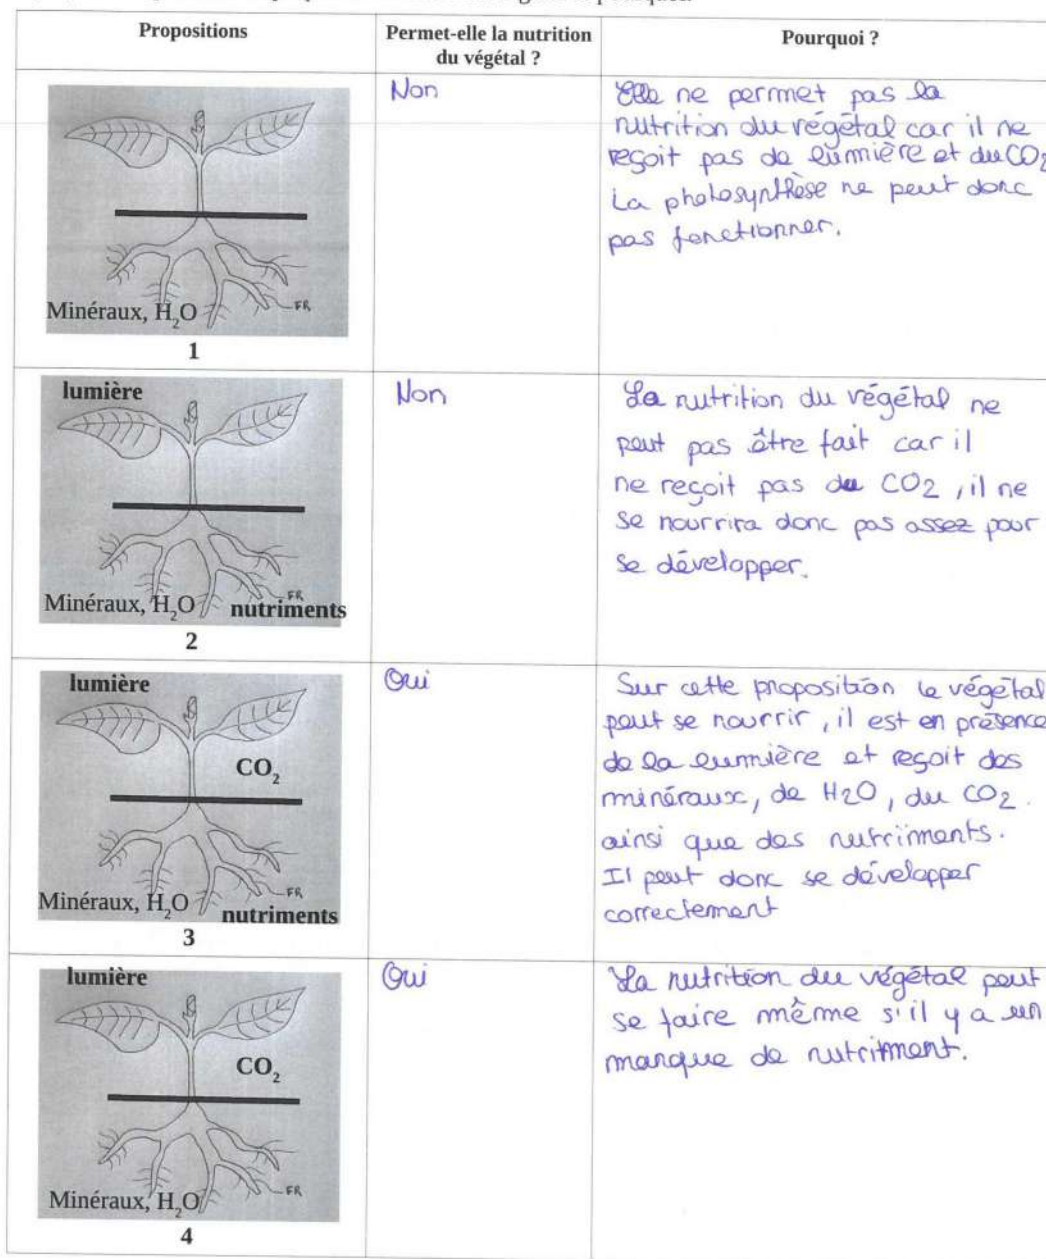 Propositions
Permet-elle la nutrition
du végétal ?
Pourquoi ?
Minéraux, H₂O
FR
1
Non
Elle ne permet pas la
nutrition du végétal car il ne
reçoit pas de lumière et du CO2
La photosynthèse ne peut donc
pas fonctionner.
lumière
Minéraux, H₂O
FR
nutriments
2
Non
La nutrition du végétal ne
peut pas être fait car il
ne reçoit pas du CO2, il ne
se nourrira donc pas assez pour
se développer.
lumière
CO₂
Minéraux, H₂O
FR
nutriments
3
Oui
Sur cette proposition le végétal
peut se nourrir, il est en présence
de la lumière et reçoit des
minéraux, de H2O, du CO2.
ainsi que des nutriments.
Il peut donc se développer
correctement
lumière
CO₂
Minéraux, H₂O
FR
4
Oui
La nutrition du végétal peut
se faire même s'il y a un
manque de nutritment.